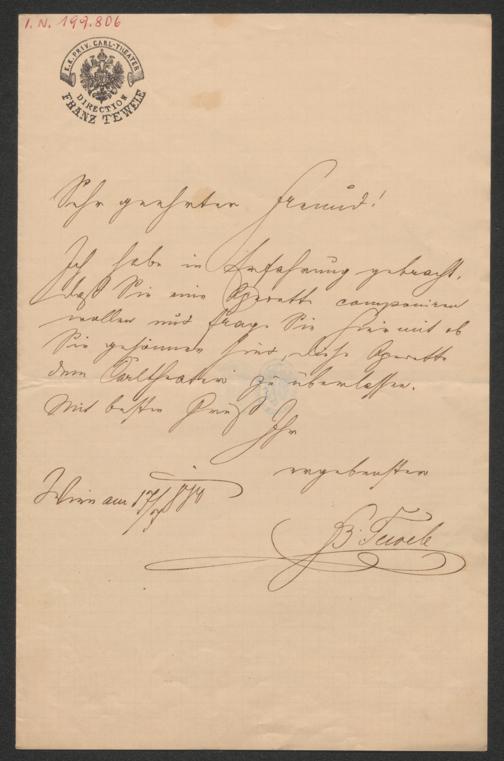 I. N. 199.806
K. K. PRIV. CARL-THEATER
DIRECTION
FRANZ TEWELE
Sehr geehrter Freund!
Ich habe in Erfahrung gebracht,
daß Sie eine Operette componiren
wollen und frage Sie hiermit ob
Sie gesonnen sind, diese Operette
dem Carltheater zu überlassen.
Mit bestem Gruß
Ihr
ergebenster
Wien am
Tewele